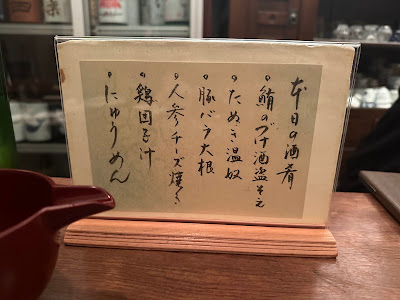 本日の酒肴
。鮪のづけ酒盗そえ
。たぬき温奴
。豚バラ大根
。人参チーズ焼き
。鶏団子汁
。にゅうめん